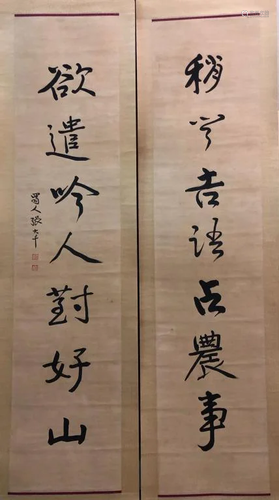 稍吉語占農事
欲遣吟人對好山
蜀人張大千